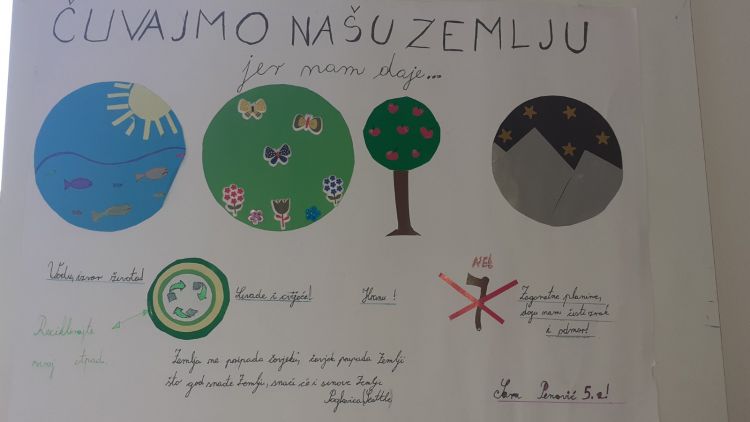 ČUVAJMO NAŠU ZEMLJU
jer nam daje...
Vodu, izvor života!
Livade i cvijeće!
Hranu!
NE!
Zagonetne planine,
daju nam čisti zrak
i odmor!
Reciklirajte
svoj otpad.
Zemlja ne pripada čovjeku, čovjek pripada Zemlji
što god snađe Zemlju, snaći će i sinove Zemlje
Poglavica (Seattle)
Sara Penović 5.a!